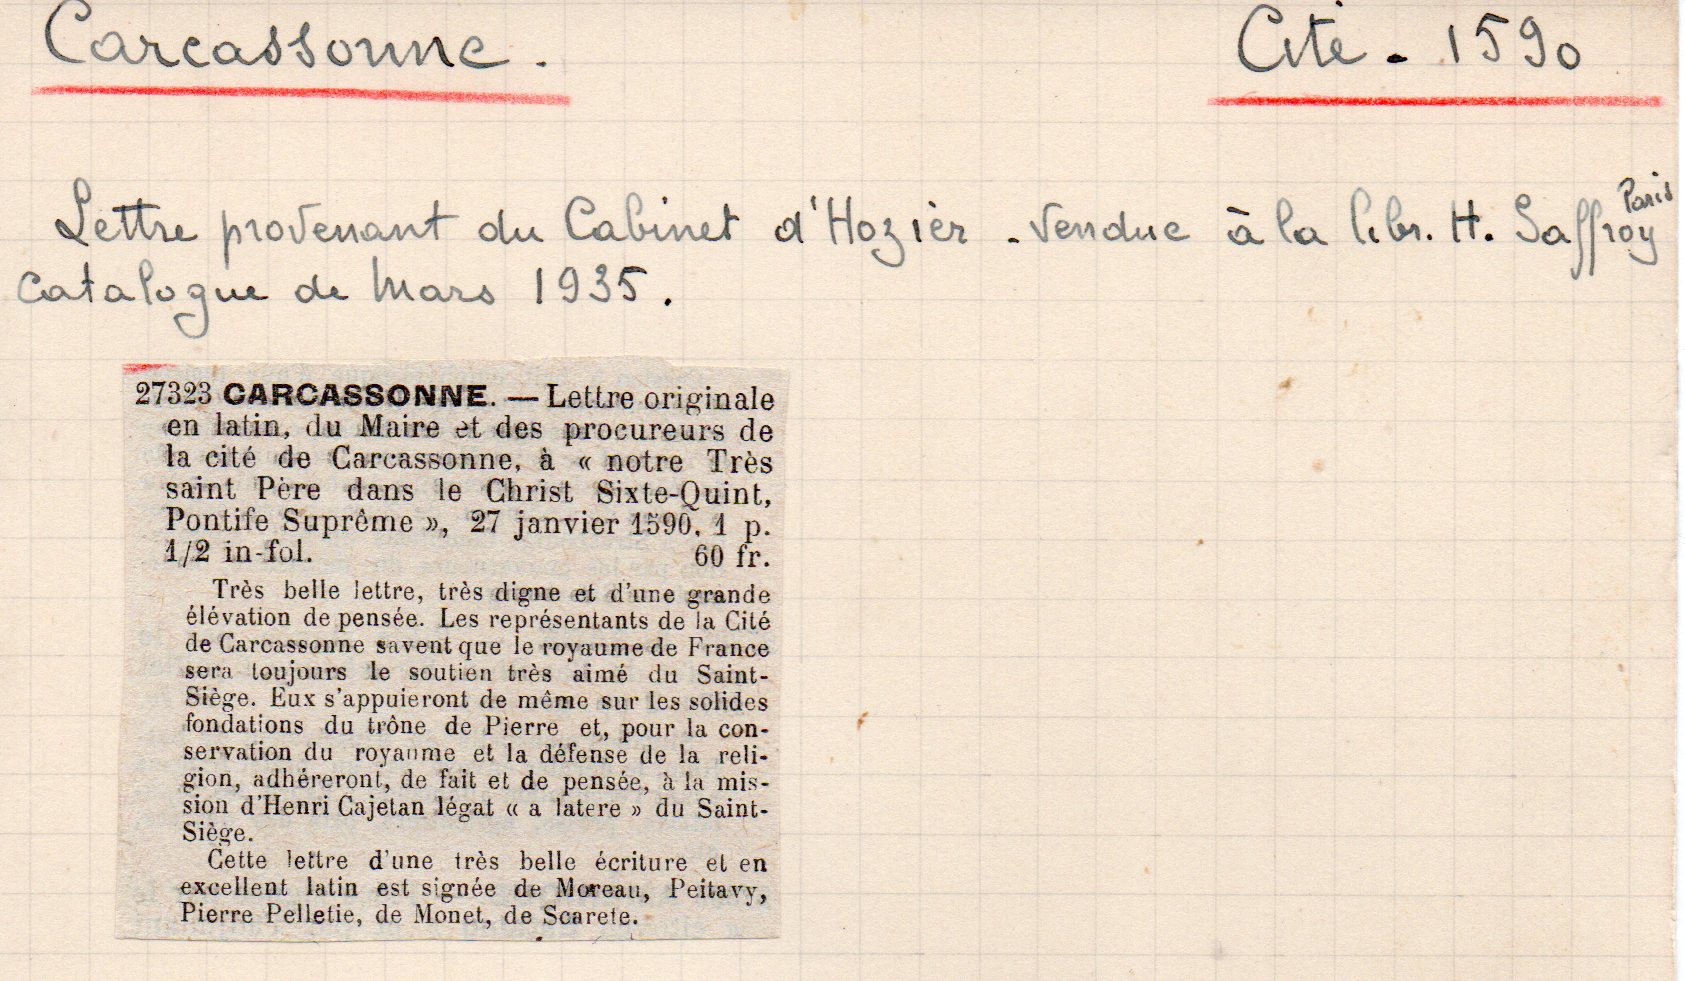 Carcassonne. Cité - 1590
Lettre provenant du Cabinet d'Hozier - vendue à la libr. H. Saffroy Paris
catalogue de Mars 1935.
27323 CARCASSONNE. — Lettre originale
en latin, du Maire et des procureurs de
la cité de Carcassonne, à « notre Très
saint Père dans le Christ Sixte-Quint,
Pontife Suprême », 27 janvier 1590, 1 p.
1/2 in-fol. 60 fr.
Très belle lettre, très digne et d'une grande
élévation de pensée. Les représentants de la Cité
de Carcassonne savent que le royaume de France
sera toujours le soutien très aimé du Saint-
Siège. Eux s'appuieront de même sur les solides
fondations du trône de Pierre et, pour la con-
servation du royaume et la défense de la reli-
gion, adhéreront, de fait et de pensée, à la mis-
sion d'Henri Cajetan légat « a latere » du Saint-
Siège.
Cette lettre d'une très belle écriture et en
excellent latin est signée de Moreau, Peitavy,
Pierre Pelletie, de Monet, de Scarete.